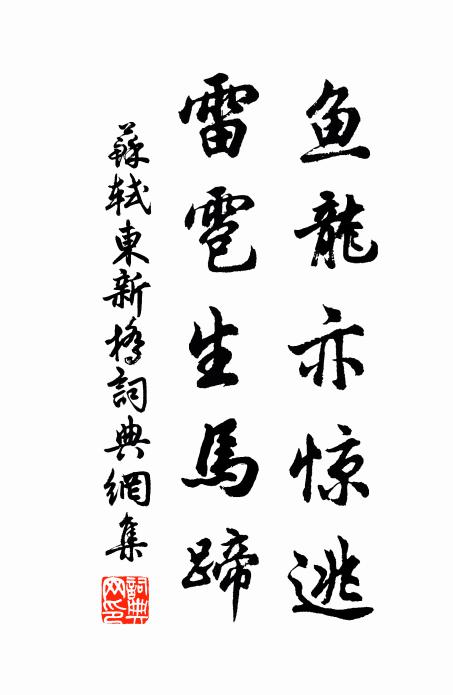 鱼龍亦惊逃
雷雹生馬蹄
蘇軾東新橋詞典網集
詞典网印